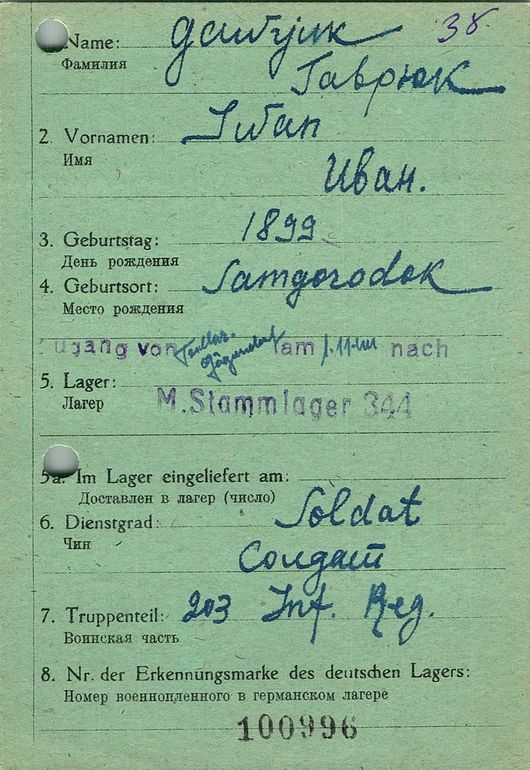 38.
Name: Gawrjuk
Фамилия
Гаврюк
2. Vornamen: Iwan
Имя
Иван.
3. Geburtstag: 1899
День рождения
4. Geburtsort: Samgorodok
Место рождения
ugang von Jägerndorf am nach
5. Lager:
Лагер
M.Stammlager 344
5a. Im Lager eingeliefert am:
Доставлен в лагер (число)
6. Dienstgrad: Soldat
Чин
Солдат
7. Truppenteil: 203 Inf. Reg.
Воинская часть
8. Nr. der Erkennungsmarke des deutschen Lagers:
Номер военнопленного в германском лагере
100996